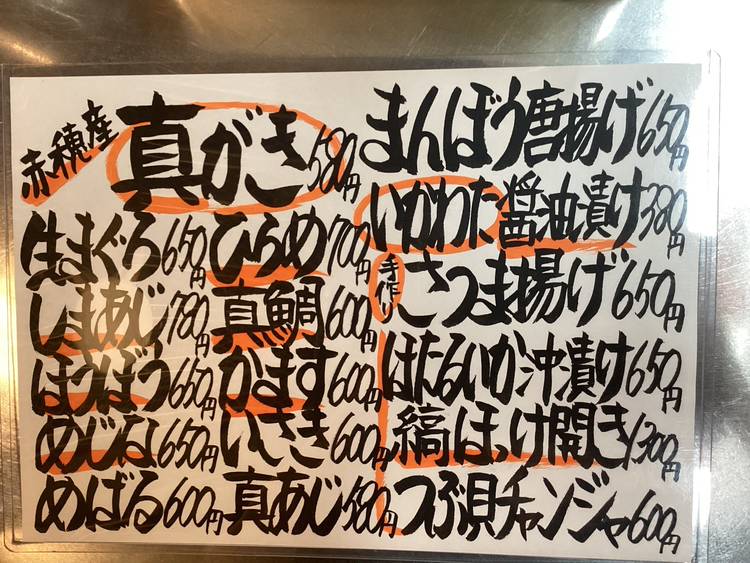 赤穂産
真がき 580円
生まぐろ 650円
しまあじ 780円
ほうぼう 650円
めじな 650円
めばる 600円
ひらめ 700円
真鯛 600円
かます 600円
いさき 600円
真あじ 580円
まんぼう唐揚げ 650円
いかわた醤油漬け 380円
手作り さつま揚げ 650円
ほたるいか沖漬け 650円
縞ほっけ開き 1300円
つぶ貝チャンジャ 600円